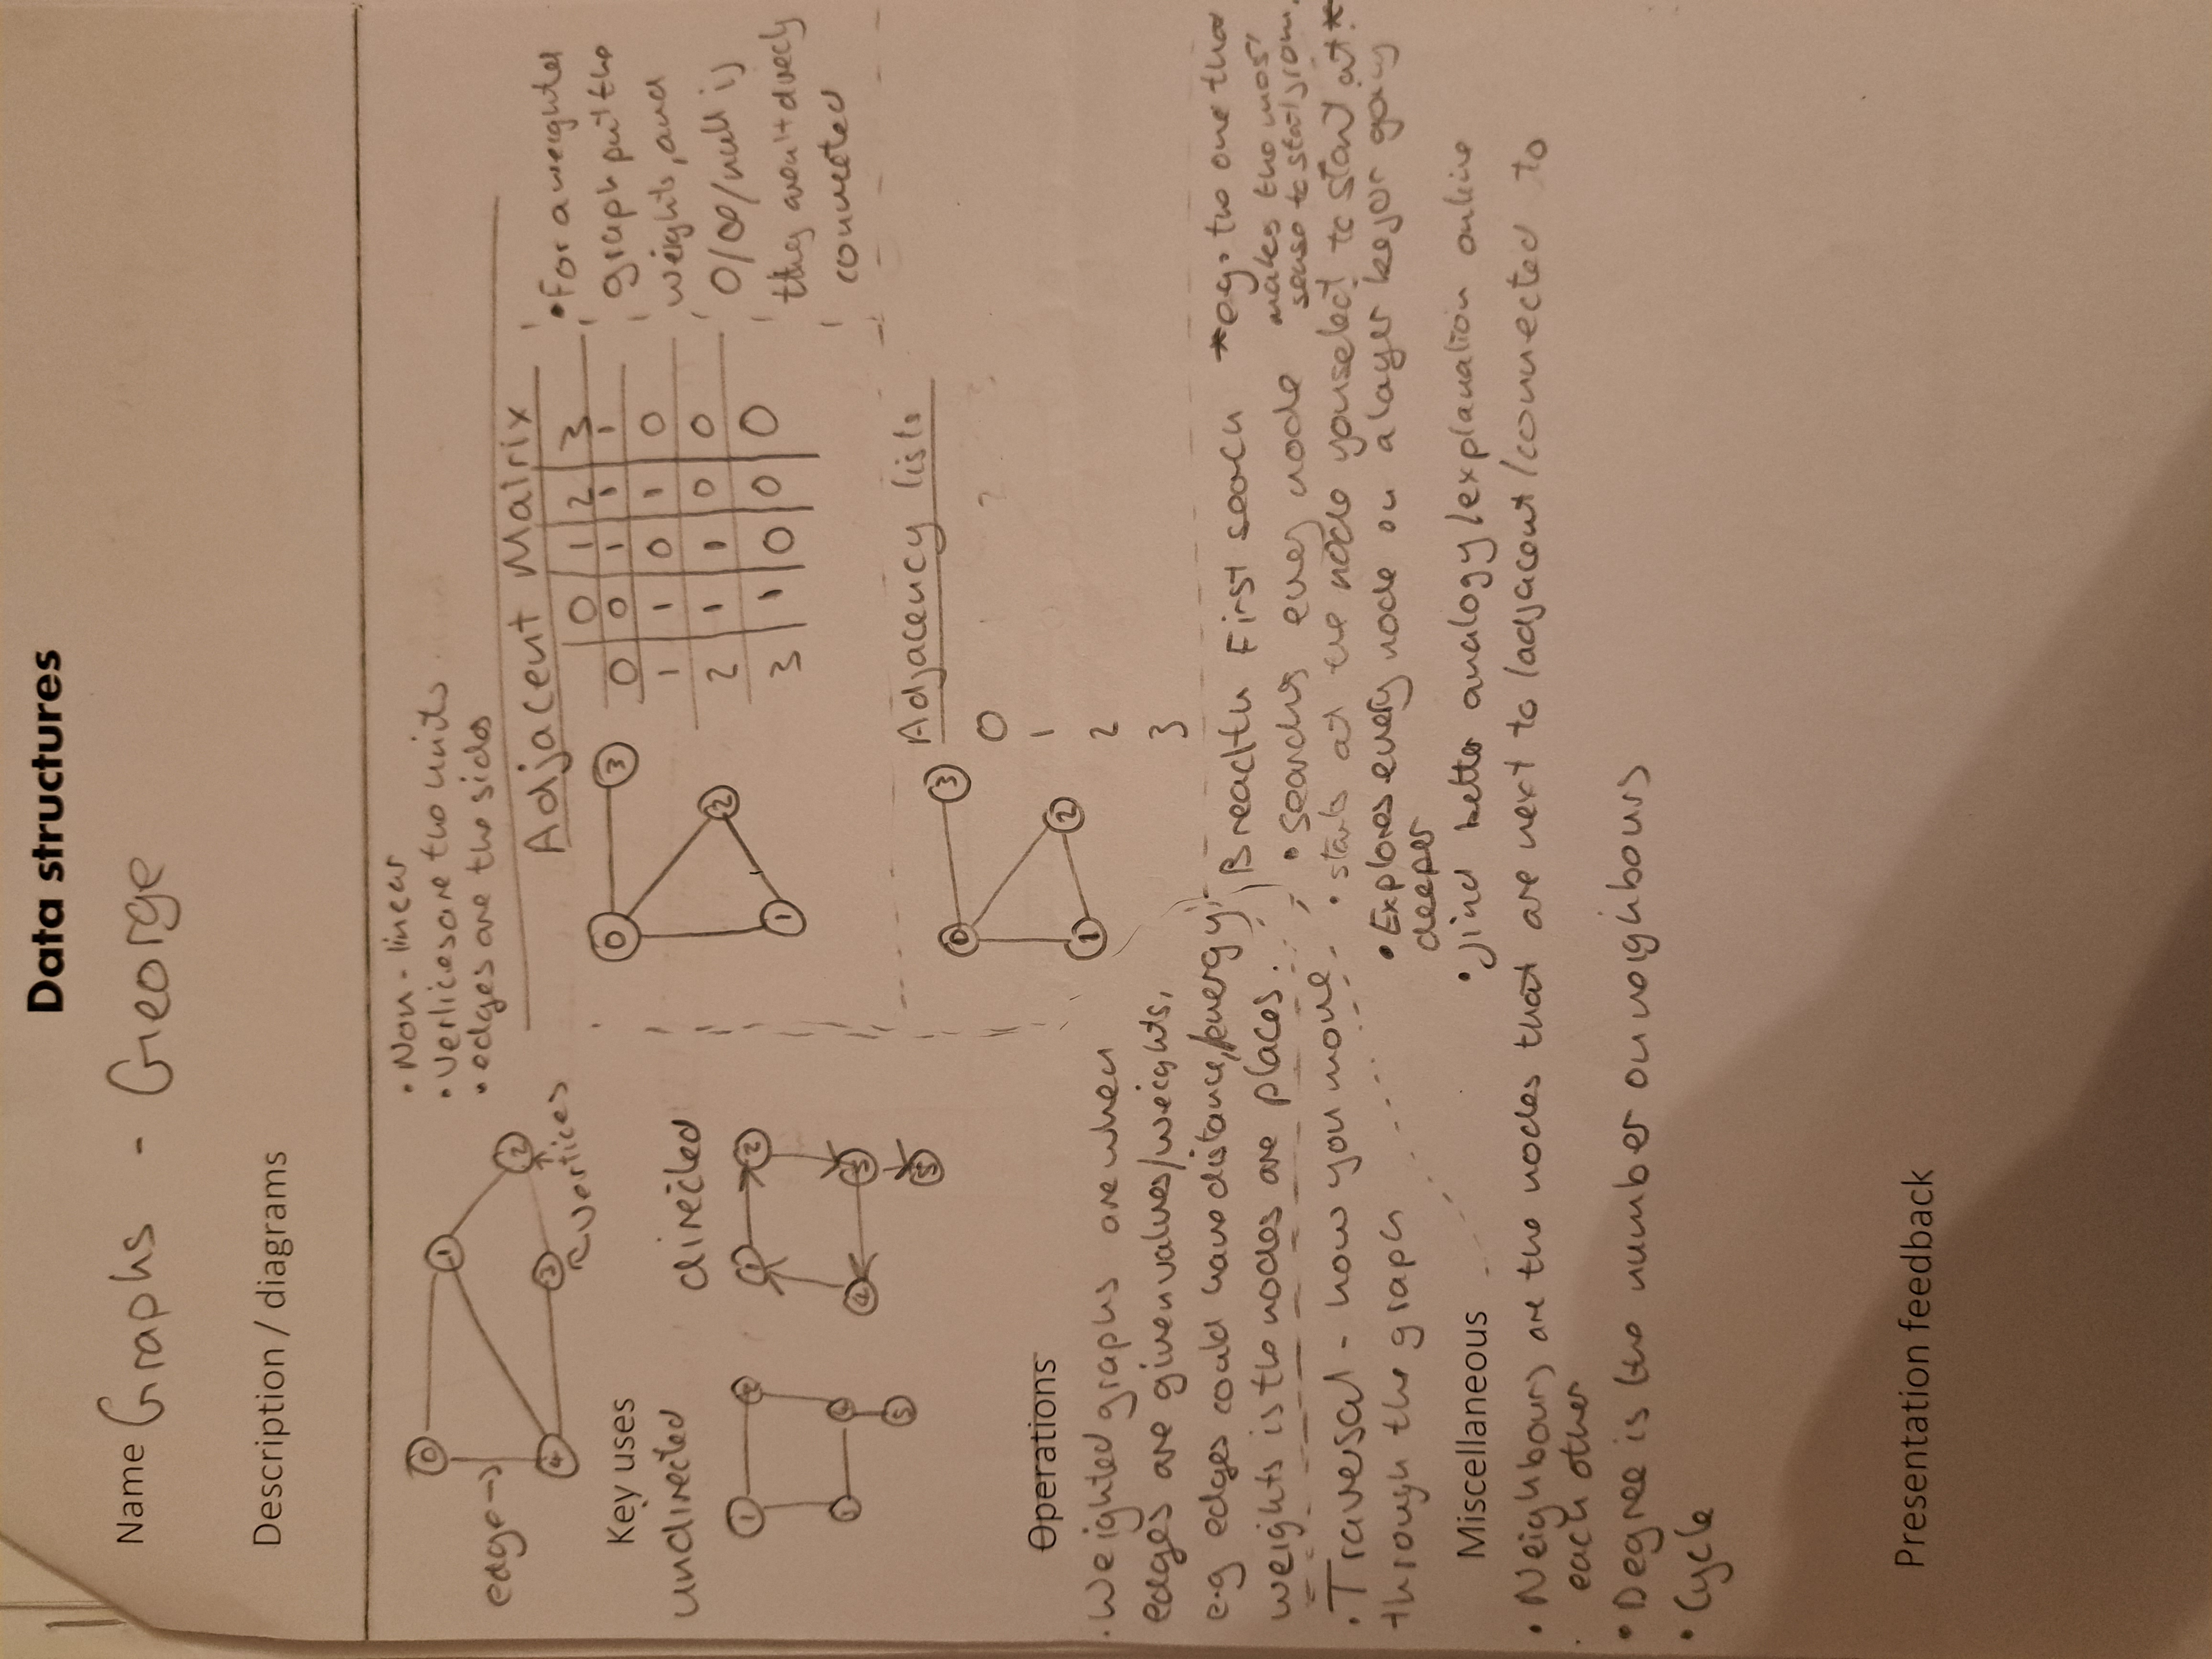 Data structures
Name Graphs - George
Description / diagrams
0
1
edge→
4
3
2
vertices
• Non-linear
• vertices are the units
• edges are the sides
Key uses
undirected
directed
1
2
5
1
2
3
4
Adjacent Matrix
0
3
2
1
0 1 2 3
0 0 1 1 1
1 1 0 1 0
2 1 1 0 0
3 1 0 0 0
• For a weighted
graph put the
weights, and
0/∞/null is
they aren't directly
connected
Adjacency lists
0
3
1
2
0
1
2
3
Operations
• Weighted graphs are when
edges are given values/weights,
e.g edges could have distance/energy
weights is the nodes are places.
• Traversal - how you move
through the graph
Breadth First search
• Searches every node
*eg. the one that
makes the most
sense to start from.
• starts at the node you select to start at*
• Explores every node on a layer before going
deeper
• find better analogy/explanation online
Miscellaneous
• Neighbours are the nodes that are next to /adjacent/connected to
each other
• Degree is the number on neighbours
• Cycle
Presentation feedback